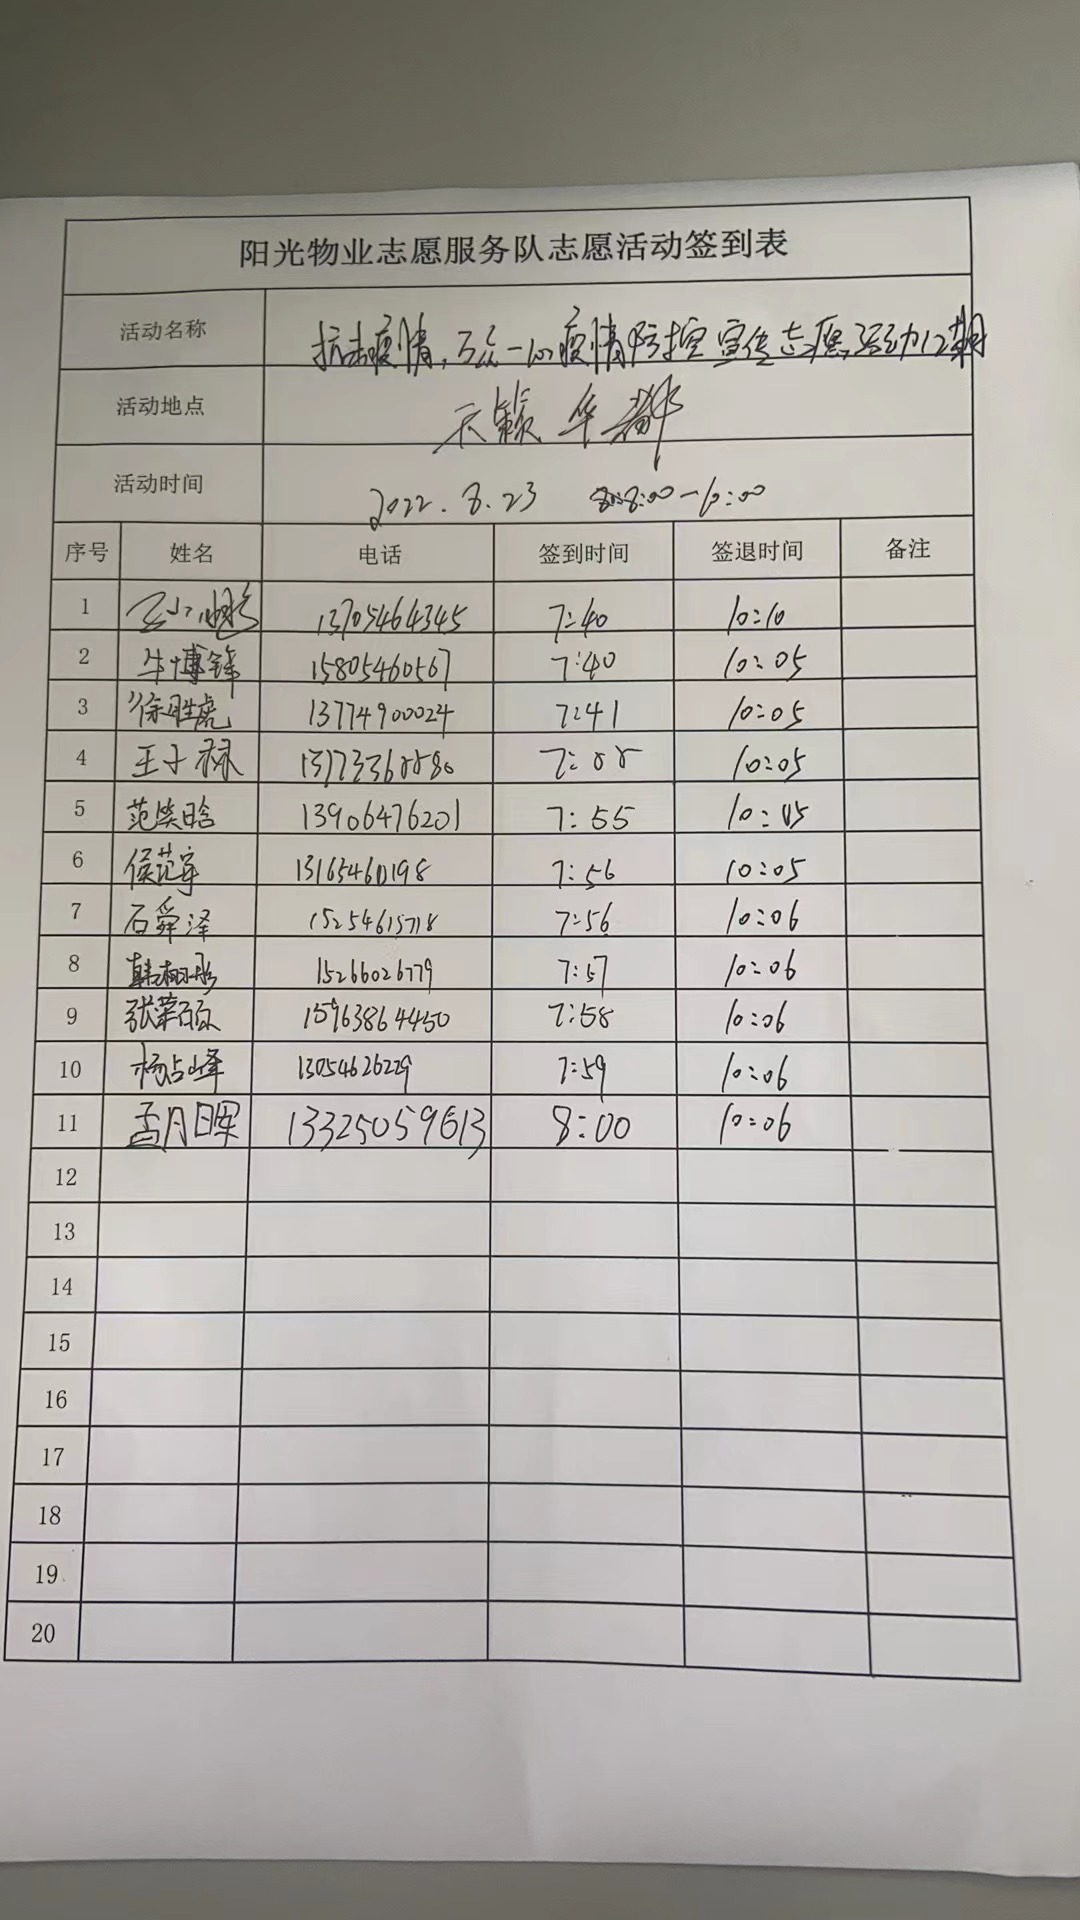 阳光物业志愿服务队志愿活动签到表
活动名称 抗击疫情,万众一心疫情防控宣传志愿活动12期
活动地点 天颖华都
活动时间 2022.8.23 8:00-10:00
序号 姓名 电话 签到时间 签退时间 备注
1 13705464345 7:40 10:10
2 牛博锋 15805460567 7:40 10:05
3 徐胜虎 13774900024 7:41 10:05
4 王子禄 7:55 10:05
5 范笑晗 13906476201 7:55 10:05
6 侯范宇 13165460198 7:56 10:05
7 石舜泽 15254615718 7:56 10:06
8 15266026779 7:57 10:06
9 15963864450 7:58 10:06
10 杨占峰 13054626229 7:59 10:06
11 孟月晖 13325059613 8:00 10:06
12
13
14
15
16
17
18
19
20